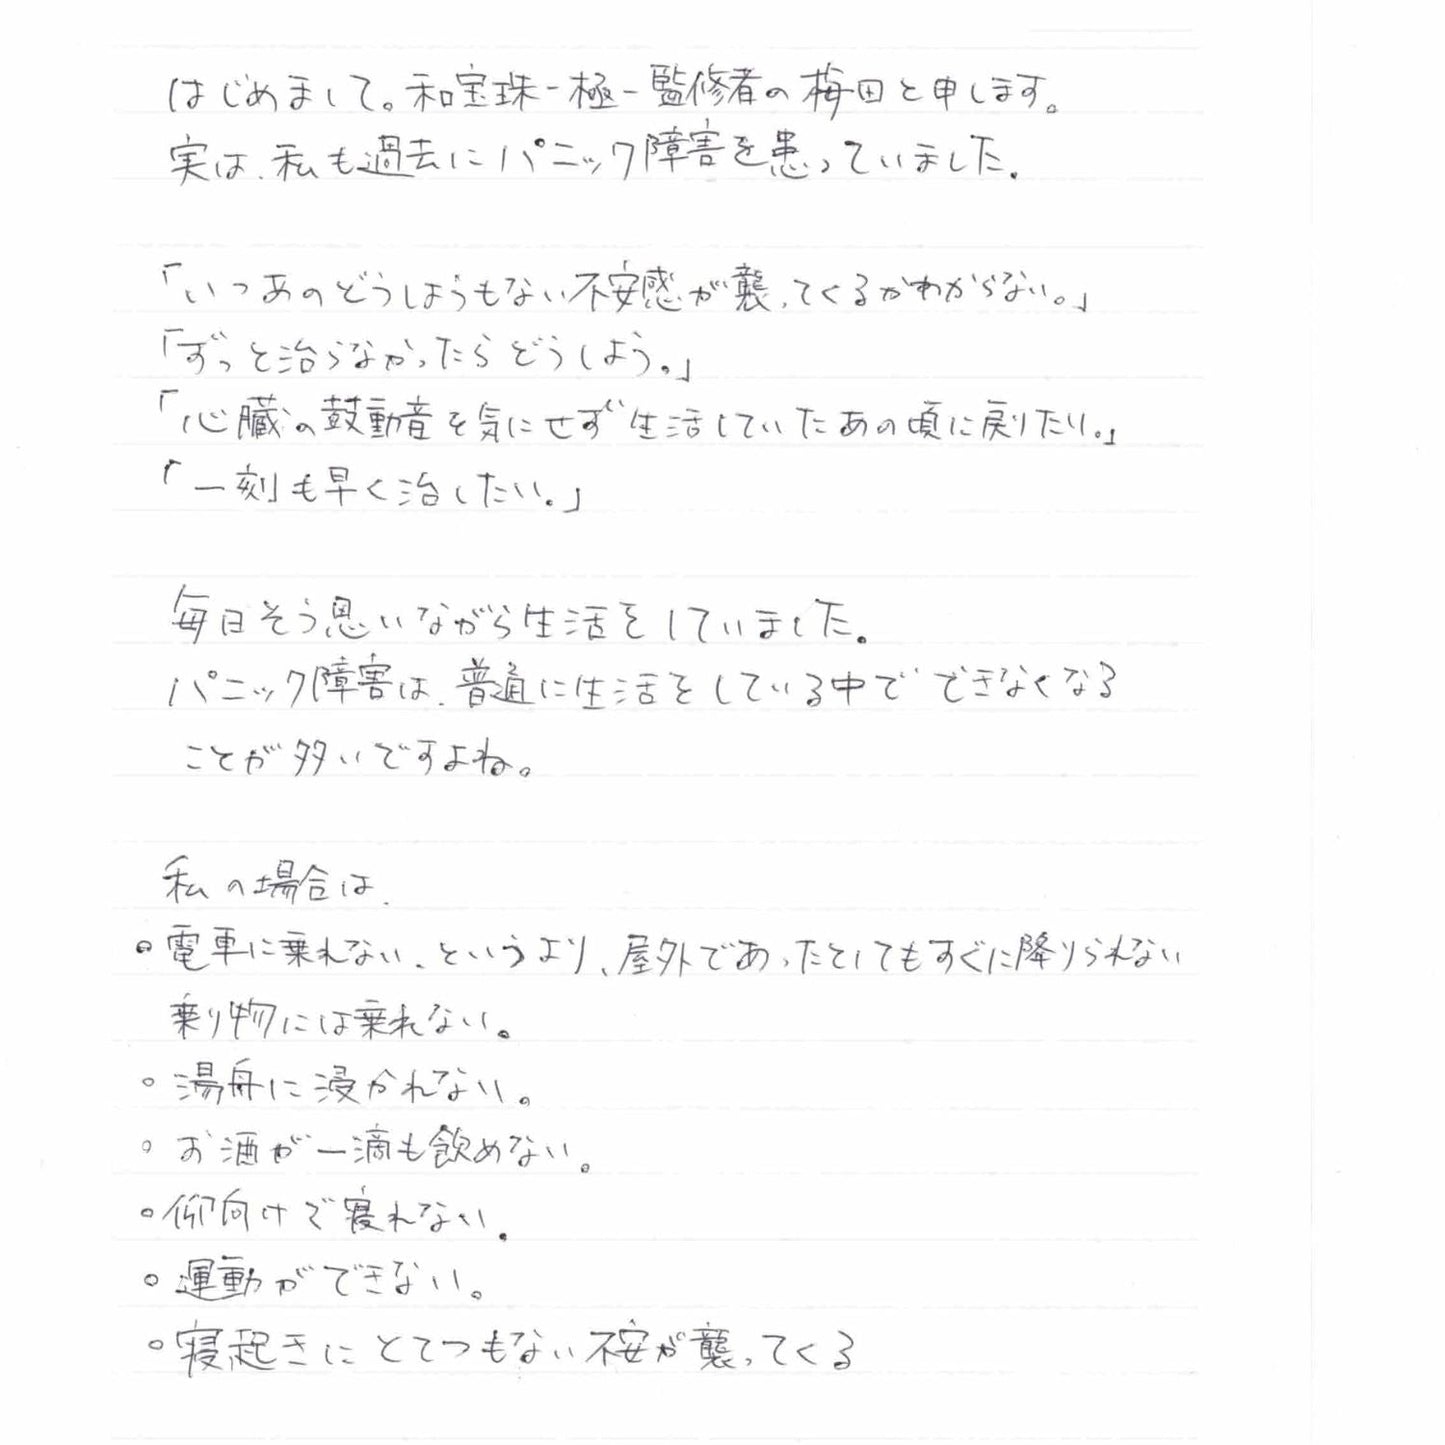 はじめまして。和宝珠-極-監修者の梅田と申します。
実は、私も過去にパニック障害を患っていました。
「いつあのどうしようもない不安感が襲ってくるかわからない。」
「ずっと治らなかったらどうしよう。」
「心臓の鼓動音を気にせず生活していたあの頃に戻りたい。」
「一刻も早く治したい。」
毎日そう思いながら生活をしていました。
パニック障害は、普通に生活をしている中でできなくなる
ことが多いですよね。
私の場合は、
○電車に乗れない、というより、屋外であったとしてもすぐに降りられない
乗り物には乗れない。
○湯舟に浸かれない。
○お酒が一滴も飲めない。
○仰向けで寝れない。
○運動ができない。
○寝起きにとてつもない不安が襲ってくる